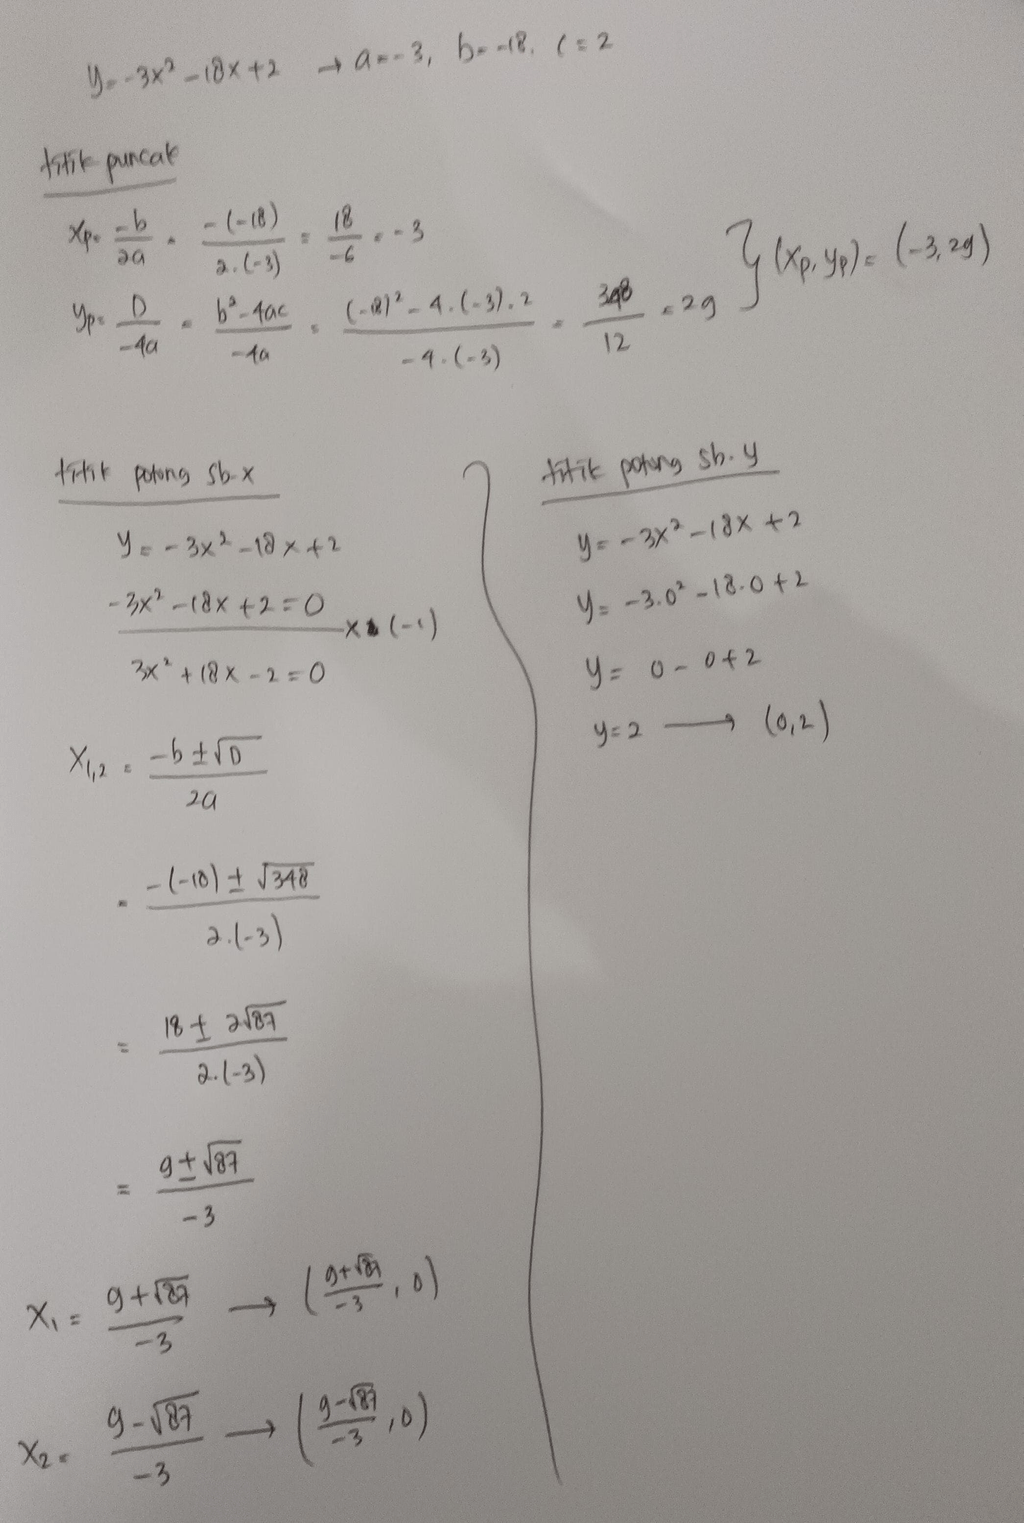 y = -3x² - 18x + 2 → a = -3, b = -18, c = 2
titik puncak
xp = -b/2a = -(-18)/2.(-3) = 18/-6 = -3
yp = D/-4a = b²-4ac/-4a = (-18)² - 4.(-3).2/-4.(-3) = 348/12 = 29
} (xp, yp) = (-3, 29)
titik potong sb-x
y = -3x² - 18x + 2
-3x² - 18x + 2 = 0
x (-1)
3x² + 18x - 2 = 0
x1,2 = -b ± √D/2a
= -(-18) ± √348/2.(-3)
= 18 ± 2√87/2.(-3)
= 9 ± √87/-3
x1 = 9+√87/-3 → (9+√87/-3, 0)
x2 = 9-√87/-3 → (9-√87/-3, 0)
titik potong sb-y
y = -3x² - 18x + 2
y = -3.0² - 18.0 + 2
y = 0 - 0 + 2
y = 2 → (0,2)